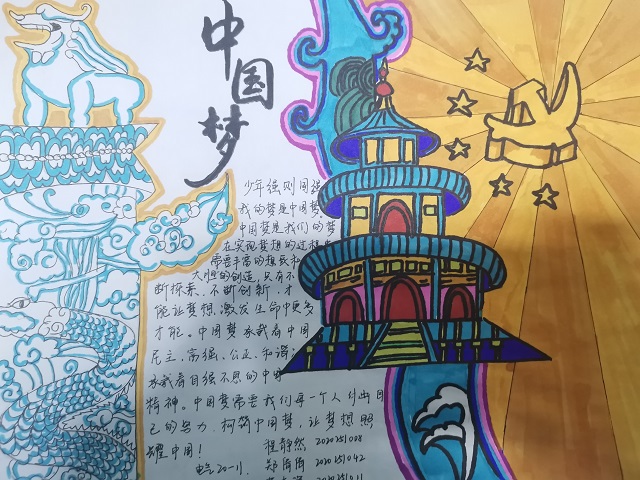 中国梦
少年强则国强
我的梦是中国梦
中国梦是我们的梦
在实现梦想的过程
需要丰富的想象和
大胆的创造,只有不
断探索、不断创新,才
能让梦想激发生命中更多
才能。中国梦承载着中国
民主、富强、公正、和谐
承载着自强不息的中华
精神。中国梦需要我们每一个人付出自
己的努力,构筑中国梦,让梦想照
耀中国!
程静然 2020251008
电气20-11. 郑雨雨 2020251042